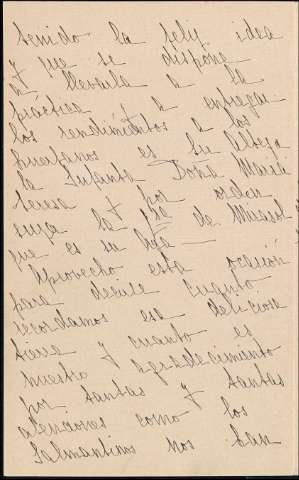 tenido la feliz idea
y que se dispone
a llevarla a la
práctica y a entregar
los rendimientos a los
huerfanos es Su Alteza
la Infanta Doña Maria
Teresa y por orden
suya la de Mirasol
que es su
Aprovecho esta ocasión
para decirle cuanto
recordamos esa deliciosa
tierra y cuanto es
nuestro agradecimiento
por tantas y tantas
atenciones como los
Salmantinos nos han